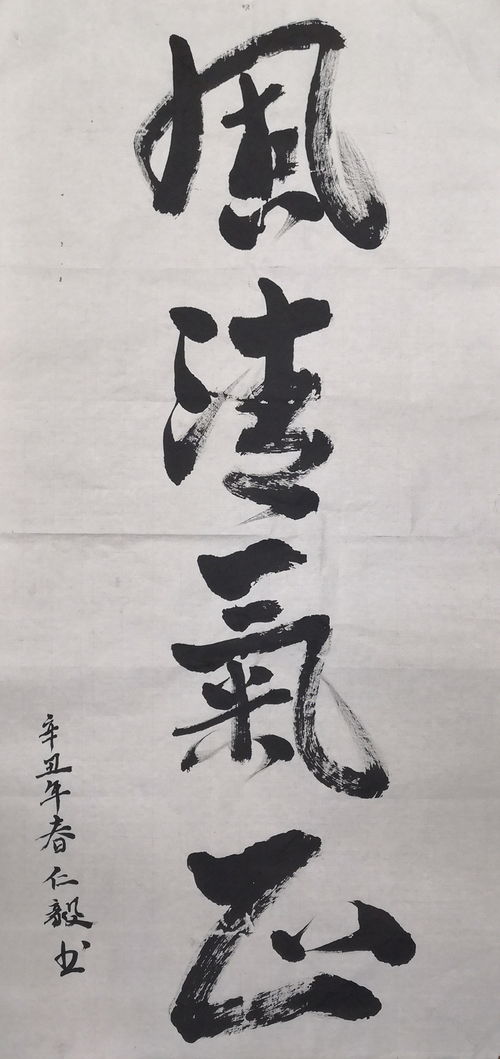 風清氣正
辛丑年春仁毅书